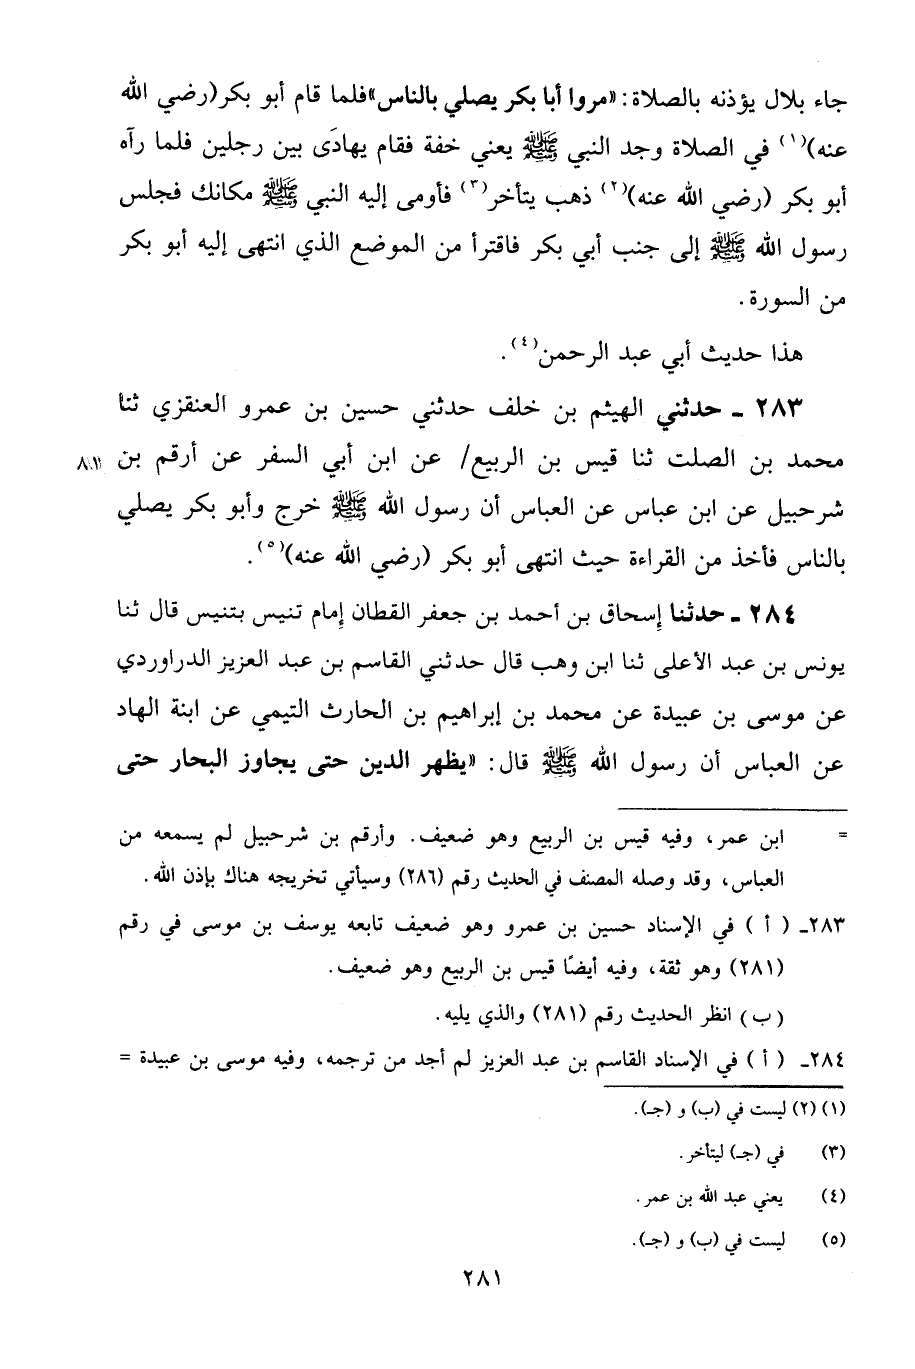 جاء بلال يؤذنه بالصلاة: «مروا أبا بكر يصلي بالناس» فلما قام أبو بكر (رضي الله
عنه)(١) في الصلاة وجد النبي ﷺ يعني خفة فقام يهادَى بين رجلين فلما رآه
أبو بكر (رضي الله عنه)(٢) ذهب يتأخر(٣) فأومى إليه النبي ﷺ مكانك فجلس
رسول الله ﷺ إلى جنب أبي بكر فاقترأ من الموضع الذي انتهى إليه أبو بكر
من السورة.
هذا حديث أبي عبد الرحمن(٤).
٢٨٣ ـ حدثني الهيثم بن خلف حدثني حسين بن عمرو العنقزي ثنا
محمد بن الصلت ثنا قيس بن الربيع/ عن ابن أبي السفر عن أرقم بن
شرحبيل عن ابن عباس عن العباس أن رسول الله ﷺ خرج وأبو بكر يصلي
بالناس فأخذ من القراءة حيث انتهى أبو بكر (رضي الله عنه)(٥).
٢٨٤ ـ حدثنا إسحاق بن أحمد بن جعفر القطان إمام تنيس بتنيس قال ثنا
يونس بن عبد الأعلى ثنا ابن وهب قال حدثني القاسم بن عبد العزيز الدراوردي
عن موسى بن عبيدة عن محمد بن إبراهيم بن الحارث التيمي عن ابنة الهاد
عن العباس أن رسول الله ﷺ قال: «يظهر الدين حتى يجاوز البحار حتى
= ابن عمر، وفيه قيس بن الربيع وهو ضعيف. وأرقم بن شرحبيل لم يسمعه من
العباس، وقد وصله المصنف في الحديث رقم (٢٨٦) وسيأتي تخريجه هناك بإذن الله.
٢٨٣ـ (أ) في الإسناد حسين بن عمرو وهو ضعيف تابعه يوسف بن موسى في رقم
(٢٨١) وهو ثقة، وفيه أيضًا قيس بن الربيع وهو ضعيف.
(ب) انظر الحديث رقم (٢٨١) والذي يليه.
٢٨٤ـ (أ) في الإسناد القاسم بن عبد العزيز لم أجد من ترجمه، وفيه موسى بن عبيدة =
(١) (٢) ليست في (ب) و (جـ).
(٣) في (جـ) ليتأخر.
(٤) يعني عبد الله بن عمر.
(٥) ليست في (ب) و (جـ).
٢٨١